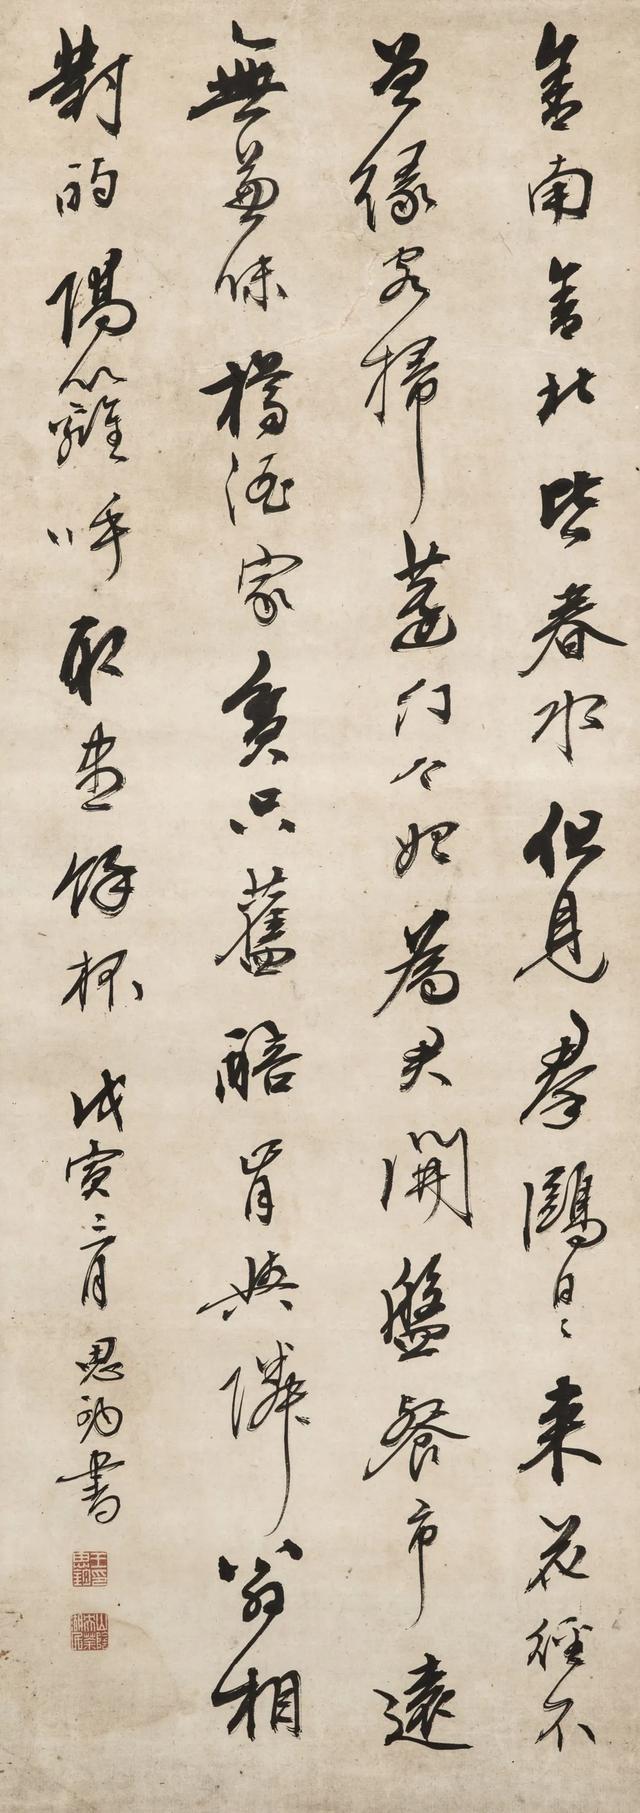 舍南舍北皆春水但見羣鷗日〻來花徑不
曾緣客掃蓬門今始為君開盤餐市遠
無蒹味樽酒家貧只舊醅肯與隣翁相
對隔籬呼取盡餘杯 戊寅月思書